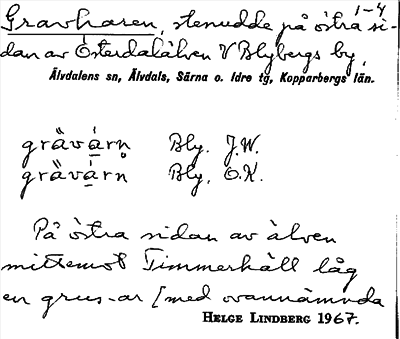 1-4
Gravharen, stenudde på östra si-
dan av Österdalälven V Blybergs by,
Älvdalens sn, Älvdals, Särna o. Idre tg, Kopparbergs län.
grävárn Bly. J.W.
grävárn Bly. O.K.
På östra sidan av älven
mittemot Timmerhäll låg
en grus-ar [med ovannämnda
HELGE LINDBERG 1967.